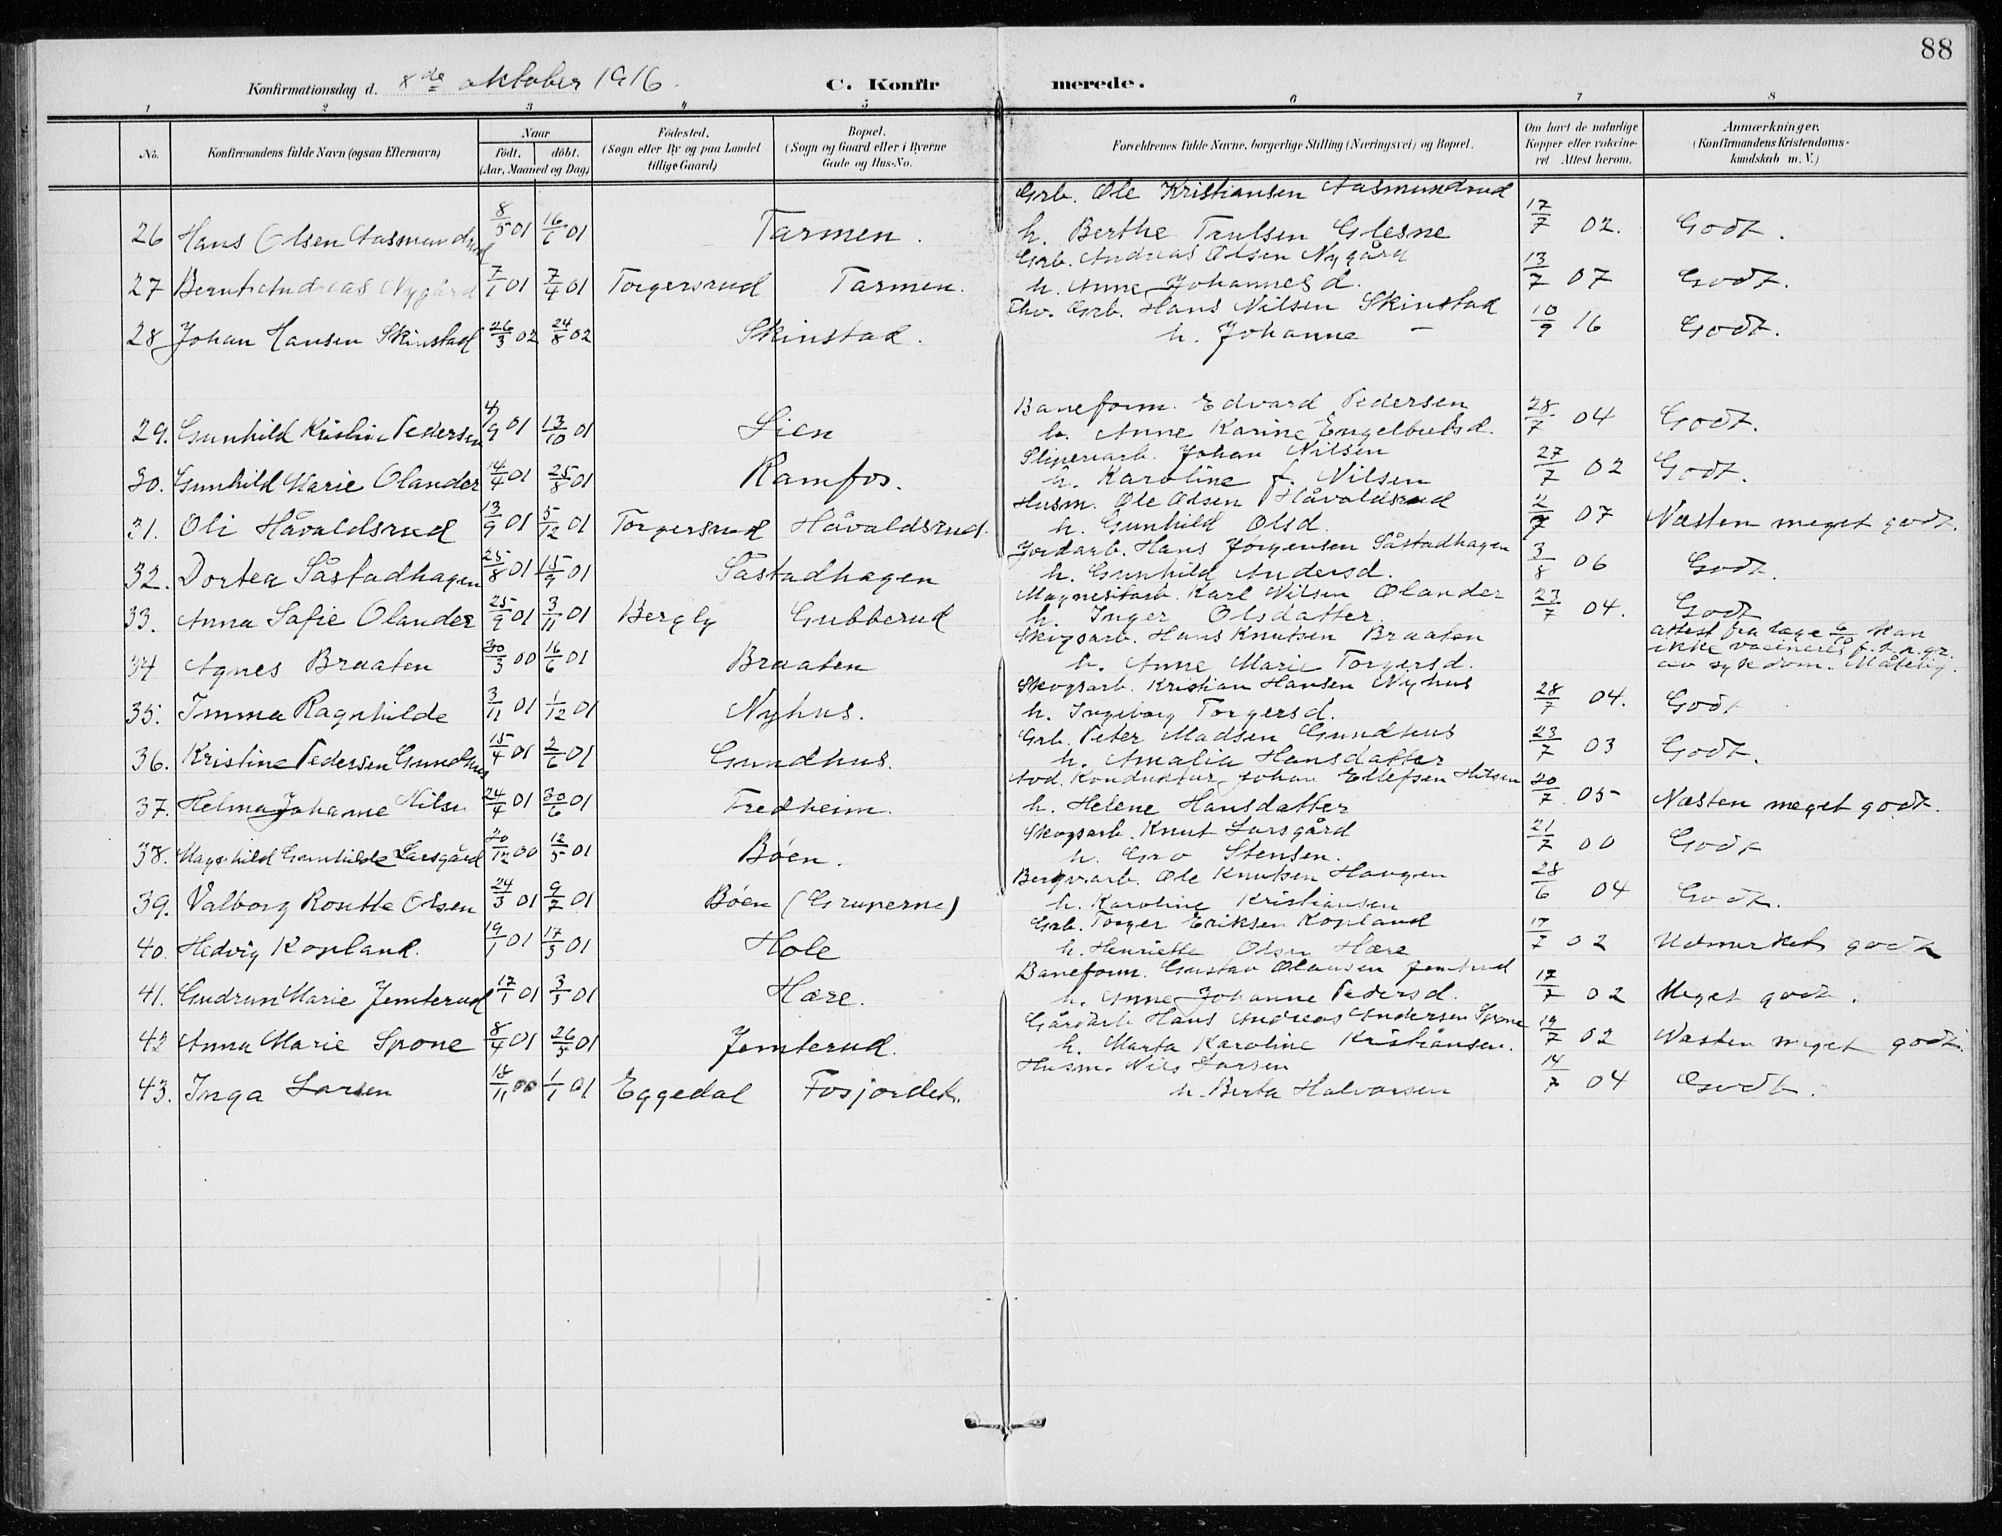 88
Konfirmationsdag d. 8de oktober 1916. C. Konfirmerede.
1 2 3 4 5 6 7 8
No. Konfirmandens fulde Navn (ogsaa Efternavn) Naar født. døbt. (Aar, Maaned og Dag) Fødested. (Sogn eller By og paa Landet tillige Gaard) Bopæl. (Sogn og Gaard eller i Byerne Gade og Hus-No. Forældrenes fulde Navne, borgerlige Stilling (Næringsvei) og Bopæl. Om havt de naturlige Kopper eller vakcineret Attest herom. Anmærkninger. (Konfirmandens Kristendomskundskab m. V.)
Grb. Ole Kristiansen Aasmundrud
26 Hans Olsen Aasmundrud 8/5 01 16/6 01 Tarmen. h. Berthe Trulsen Glesne 17/7 02. Godt.
Grb. Andreas Olsen Nygård
27 Bernt Andreas Nygård 7/1 01 7/4 01 Torgersrud Tarmen. h. Anne Johannesd. 13/7 07 Godt.
Fhv. Grb. Hans Nilsen Skinstad
28 Johan Hansen Skinstad 26/3 02 24/8 02 Skinstad. h. Johanne – 10/9 16 Godt.
Baneform. Edvard Pedersen
29. Gunhild Kristine Pedersen 4/9 01 13/10 01 Lien h. Anne Karine Engelbretsd. 28/7 04 Godt.
Sliperiarb. Johan Nilsen
30. Gunhild Marie Olander 14/4 01 25/8 01 Ramfos. h. Karoline f. Nilsen 27/7 02 Godt.
Husm. Ole Olsen Håvaldsrud
31. Oli Håvaldsrud 13/9 01 5/12 01 Torgersrud Håvaldsrud. h. Gunhild Olsd. 07 Næsten meget godt.
Jordarb. Hans Jørgensen Såstadhagen
32. Dortea Såstadhagen 25/8 01 15/9 01 Såstadhagen h. Gunhild Andersd. 3/8 06 Godt.
Magnesitarb. Karl Nilsen Olander
33. Anna Sofie Olander 25/9 01 3/11 01 Bergly Gubberud h. Inger Olsdatter 23/7 04. Godt
Skogsarb. Hans Knutsen Braaten attest fra læge 6/10 kan
34 Agnes Braaten 30/3 00 16/6 01 Braaten h. Anne Marie Torgersd. ikke vacineres f. t. p. gr. av sykdom. Måtelig.
Skogsarb. Kristian Hansen Nyhus
35. Imma Ragnhilde 3/11 01 1/12 01 Nyhus. h. Ingeborg Torgersd. 28/7 04. Godt
Grb. Peter Madsen Gundhus
36. Kristine Pedersen Gundhus 15/4 01 2/6 01 Gundhus. h. Amalia Hansdatter 23/7 03 Godt.
Avd. Konduktør Johan Ellefsen Hilsen
37. Helma Johanne Hilsen 24/4 01 30/6 01 Fredheim. h. Helene Hansdatter 20/7 05 Næsten meget godt.
Skogsarb. Knut Larsgård
38. Magnhild Gunhilde Larsgård 20/12 00 12/5 01 Bøen. h. Gro Stensen. 21/7 00 Godt
Bergvarb. Ole Knutsen Haugen
39. Valborg Rosette Olsen 24/3 01 9/7 01 Bøen (Gruperne) h. Karoline Kristiansen 28/6 04 Godt.
Grb. Torger Eriksen Kopland
40. Hedvig Kopland. 19/1 01 17/3 01 Hole h. Henriette Olsen Hære 17/7 02 Udmerket godt
Baneform. Gustav Olausen Jemterud
41. Gudrun Marie Jemterud 17/1 01 3/3 01 Hære. h. Anne Johanne Pedersd. 17/7 02 Meget godt.
Gårdarb. Hans Andreas Andersen Spone
42 Anna Marie Spone 8/4 01 26/5 01 Jemterud. h. Marta Karoline Kristiansen. 19/7 02 Næsten meget godt.
Husm. Nils Larsen
43. Inga Larsen 18/11 00 1/1 01 Eggedal Fosjordet. h. Berta Halvorsen 14/7 04 Godt.